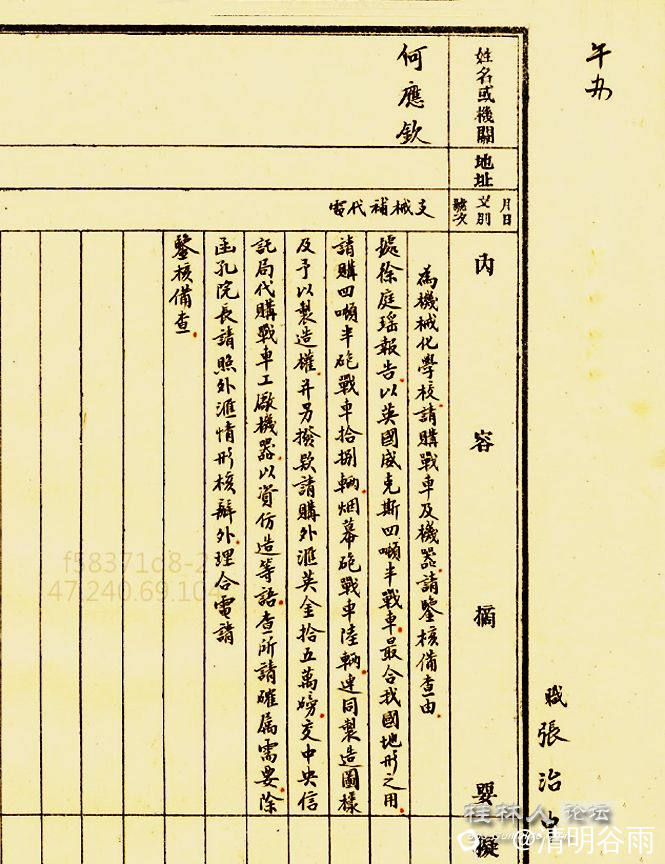 午冊
職張治中
姓名或機關
地址
月日
文別
號次
內容摘要
擬
何應欽
支械補代電
為機械化學校請購戰車及機器請鑒核備查由
據徐庭瑤報告以英國威克斯四噸半戰車最合我國地形之用
請購四噸半砲戰車拾捌輛烟幕砲戰車陸輛連同製造圖樣
及予以製造權并另撥欵請購外滙英金拾五萬磅交中央信
託局代購戰車工廠機器以資仿造等語查所請確屬需要除
函孔院長請照外滙情形核辦外理合電請
鑒核備查
f58371d8-2
47.240.69.104
桂林人论坛
@清明谷雨